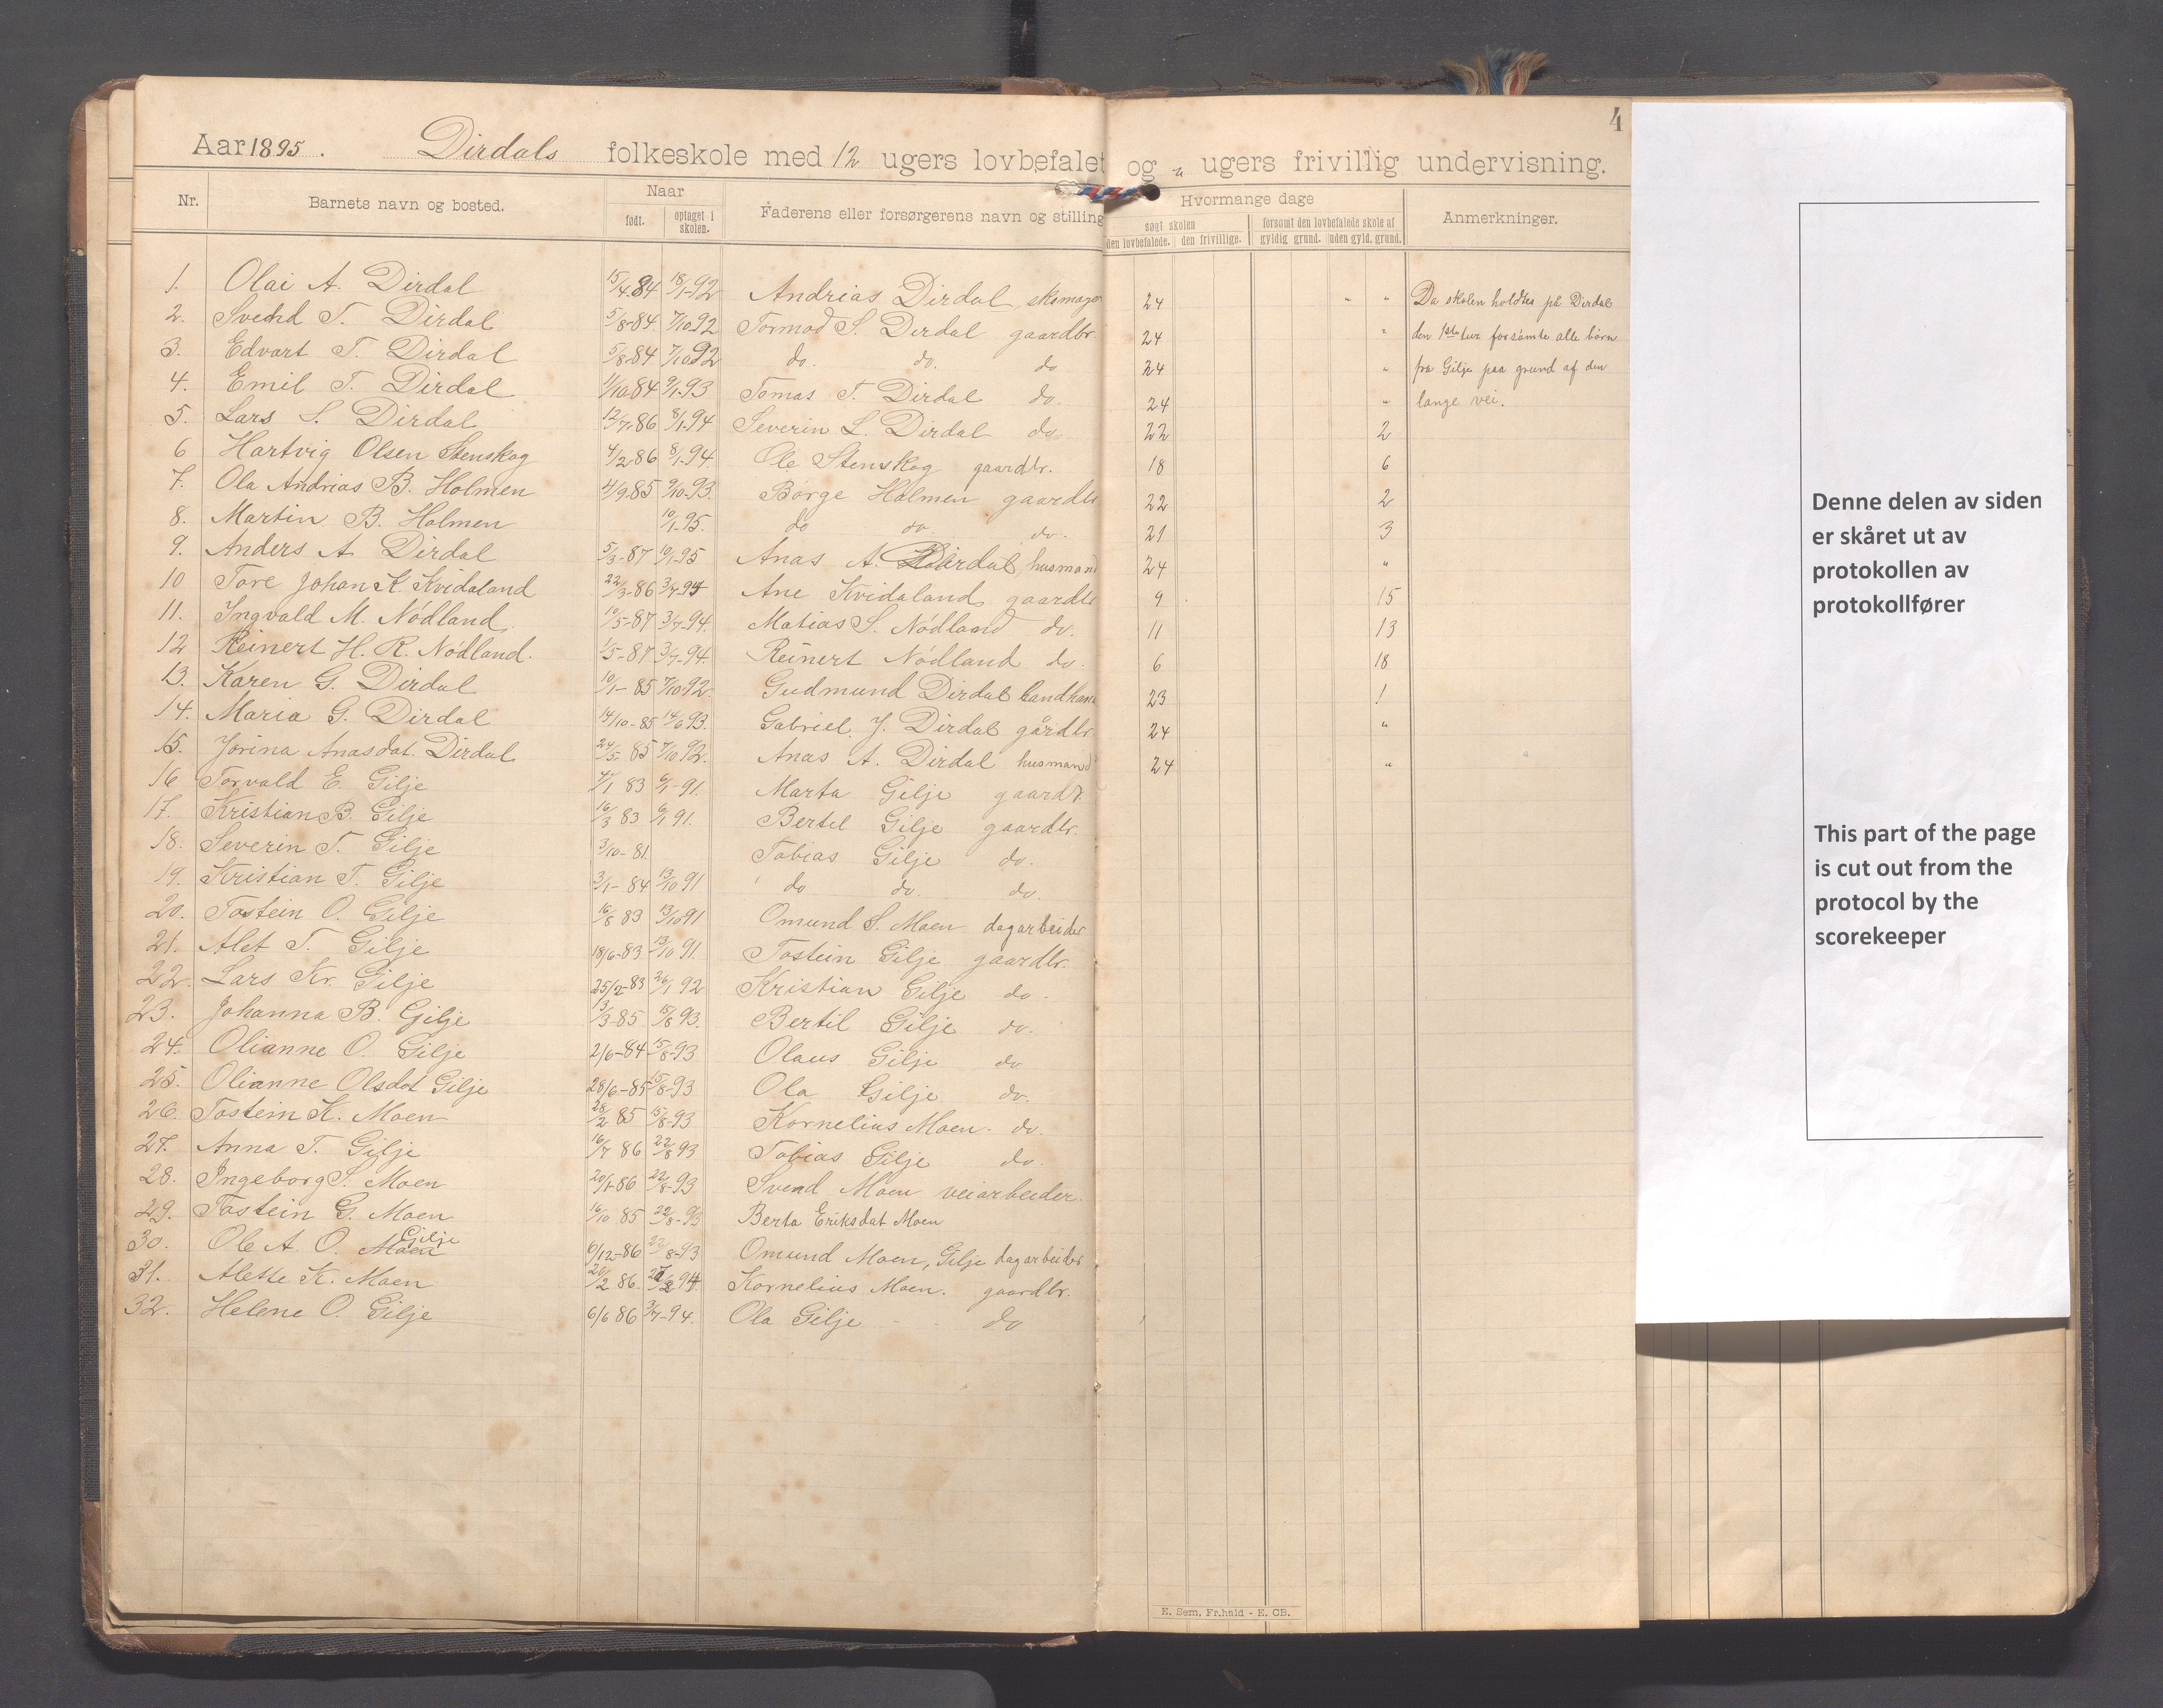 4
Aar 1895. Dirdals folkeskole med 12 ugers lovbefalet og " ugers frivillig undervisning.
Nr. Barnets navn og bosted. Naar født. optaget i skolen. Faderens eller forsørgerens navn og stilling Hvormange dage søgt skolen den lovbefalede. den frivillige. forsømt den lovbefalede skole af gyldig grund. uden gyld. grund. Anmerkninger.
1. Olai A. Dirdal 15/4-84 18/1-92 Andrias Dirdal, skomager 24 " " Da skolen holdtes på Dirdal
2. Svend T. Dirdal 5/8-84. 7/10.92 Tormod S. Dirdal gaardbr. 24 " den 1ste tur forsømte alle børn
3. Edvart T. Dirdal 5/8-84 7/10.92 do. do. do 24 " fra Gilje paa grund af den
4. Emil T. Dirdal 1/10.84 9/1-93 Tomas T. Dirdal do. 24 " lange vei.
5. Lars S. Dirdal 12/7-86 8/1-94 Severin L. Dirdal do 22 2
6 Hartvig Olsen Stenskog 4/2-86 8/1-94. Ole Stenskog gaardbr. 18 6
7. Ola Andrias B. Holmen 4/9.85 9/10-93. Børge Holmen gaardbr 22 2
8. Martin B. Holmen 10/1-95. do do do. 21 3
9. Anders A Dirdal 5/3-87 10/1-95 Anas A. Dirdal, husmand 24 "
10 Tore Johan K. Kvidaland 22/3-86 3/7-94 Ane Kvidaland gaardbr 9 15
11. Ingvald M. Nødland. 10/5-87 3/7-94. Matias S. Nødland do. 11 13
12 Reinert H. R. Nødland. 1/5-87 3/7-94. Reinert Nødland do. 6 18
13. Karen G. Dirdal 10/1-85 7/10.92. Gudmund Dirdal landhan 23 1
14. Maria G. Dirdal 14/10-85 14/6 93. Gabriel J. Dirdal gårdbr. 24 "
15. Jorina Anasdat. Dirdal 24/5-85 7/10.92. Anas A. Dirdal husmand 24 "
16 Torvald E. Gilje 4/1 83 6/1-91. Marta Gilje
17. Kristian B. Gilje 16/3 83 6/1 91. Bertel Gilje gaardbr.
18. Severin T. Gilje 3/10-81. Tobias Gilje do.
19. Kristian T. Gilje 3/1-84 13/10 91 do do. do.
20. Tostein O. Gilje 16/8 83 13/10 91 Omund S. Moen dagarbeider
21. Alet T. Gilje 18/6-83 13/10 91. Tostein Gilje gaardbr.
22. Lars Kr. Gilje 25/2-83 26/1 92 Kristian Gilje do.
23. Johanna B. Gilje 3/3-85 15/8 93. Bertil Gilje do.
24. Olianne O. Gilje 2/6-84 15/8-93 Olaus Gilje do
25. Olianne Olsdat Gilje 28/6-85 15/8-93 Ola Gilje do.
26. Tostein K. Moen 28/2 85 15/8-93 Kornelius Moen. do.
27. Anna T. Gilje 16/7 86 22/8 93 Tobias Gilje do.
28. Ingeborg S. Moen 20/1-86 22/8-93 Svend Moen veiarbeider.
29. Tostein G. Moen 16/10 85 22/8-93 Berta Eriksdat Moen
30. Ole A. O. Moen Gilje 6/12-86 22/8-93 Omund Moen, Gilje dagarbeider
31. Alette K. Moen 20/2 86. 94. Kornelius Moen. gaardbr.
32. Helene O. Gilje 6/6 86 3/7-94. Ola Gilje do
E. Sem, Fr.hald - E. CB.
Denne delen av siden
er skåret ut av
protokollen av
protokollfører
This part of the page
is cut out from the
protocol by the
scorekeeper